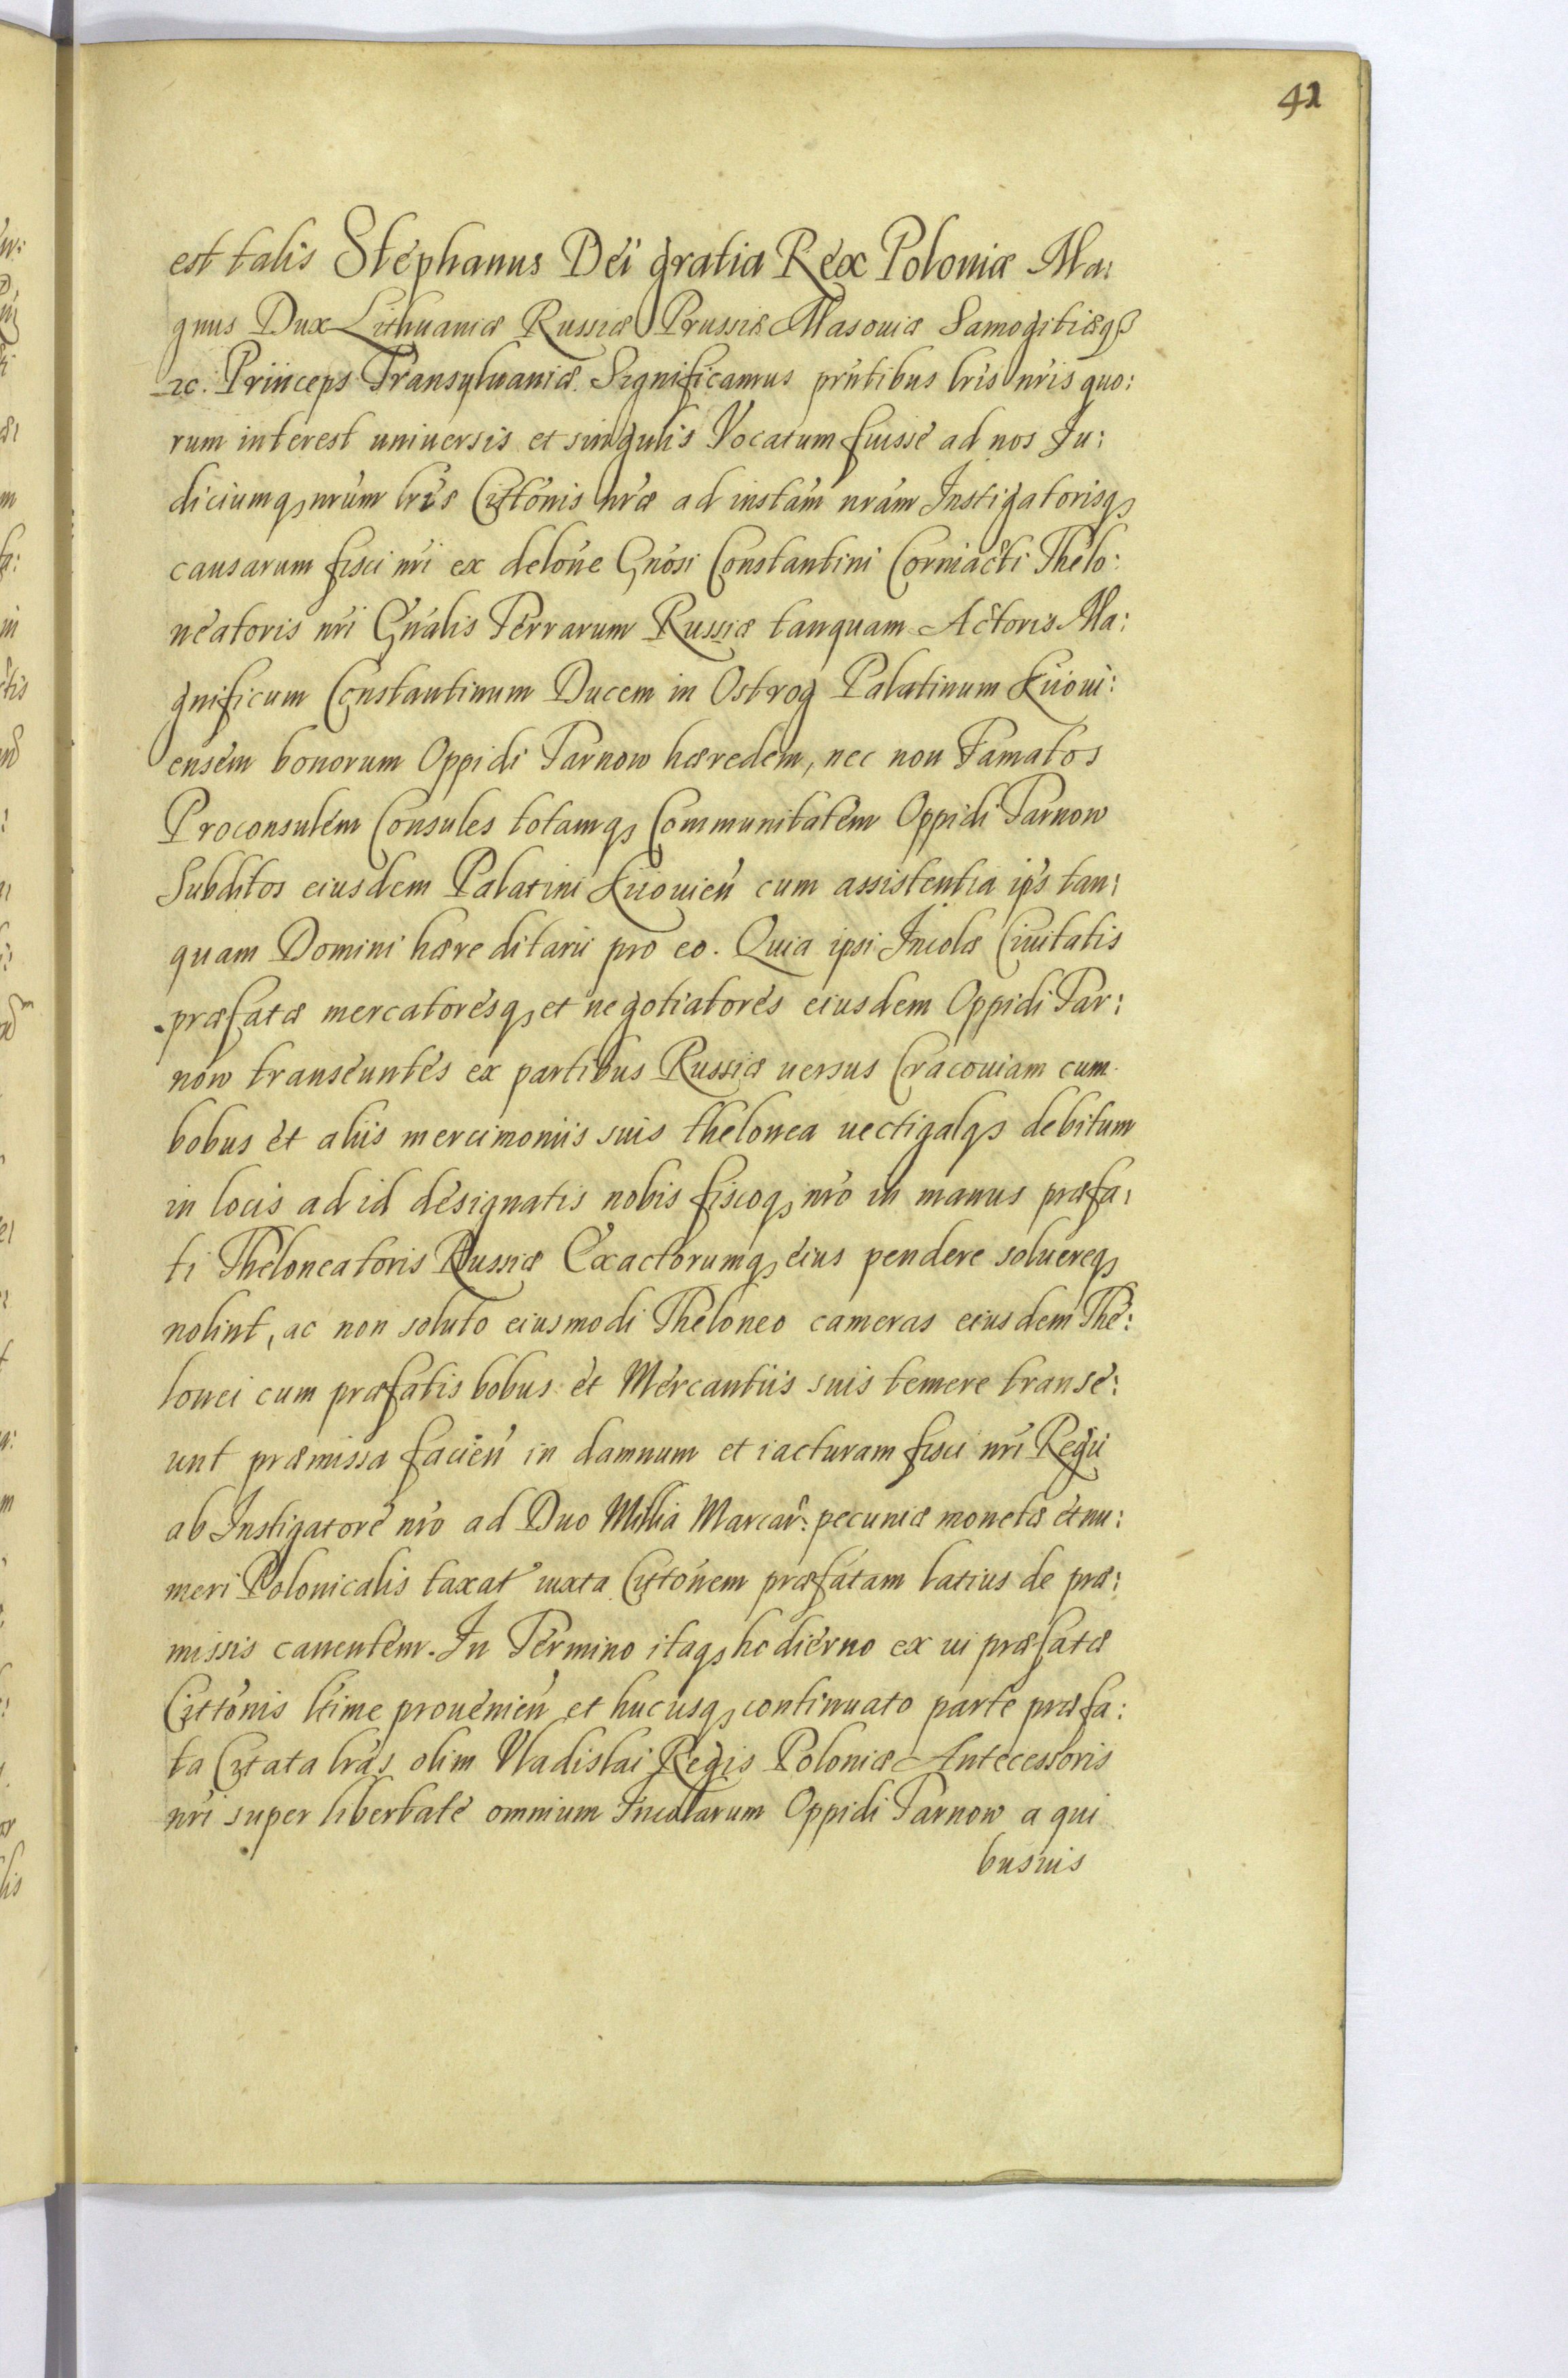 41
est talis Stephanus Dei gratia Rex Poloniæ Ma:
gnus Dux Lithuaniæ Russiæ Prussiæ Masouiæ Samogitiæq3
zc. Princeps Transyluaniæ. Significamus pñtibus lris nris quo:
rum interest uniuersis et singulis Vocatum fuisse ad nos Iu:
diciumq3 nrum lris Cittonis nræ ad instam nram Instigatorisq3
causarum fisci nri ex delone Gnosi Constantini Corniacti Thelo:
neatoris nri Gnalis Terrarum Russiæ tanquam Actoris Ma:
gnificum Constantinum Ducem in Ostrog Palatinum Kiioui:
ensem bonorum Oppidi Tarnow hæredem, nec non Famatos
Proconsulem Consules totamq3 Communitatem Oppidi Tarnow
Subditos eiusdem Palatini Kiiouien cum assistentia ips tan:
quam Domini hæreditarii pro eo. Quia ipsi Incolæ Ciuitatis
præfatæ mercatoresq3 et negotiatores eiusdem Oppidi Tar:
now transeuntes ex partibus Russiæ uersus Cracouiam cum
bobus et aliis mercimoniis suis thelonea uectigalq3 debitum
in locis ad id designatis nobis fiscoq3 nro in manus præfa:
ti Theloneatoris Russiæ Exactorumq3 eius pendere soluereq3
nolint, ac non soluto eiusmodi Theloneo cameras eiusdem The:
lonei cum præfatis bobus et Mercantiis suis temere transe:
unt præmissa facien in damnum et iacturam fisci nri Regii
ab Instigatore nro ad Duo Millia Marcar: pecuniæ monetæ et nu:
meri Polonicalis taxat iuxta Cittonem præfatam latius de præ:
missis canentem. In Termino itaq3 hodierno ex ui præfatæ
Cittonis ltime prouenien et hucusq3 continuato parte præfa:
ta Citata lras olim Vladislai Regis Poloniæ Antecessoris
nri super libertate omnium Incolarum Oppidi Tarnow a qui
busuis